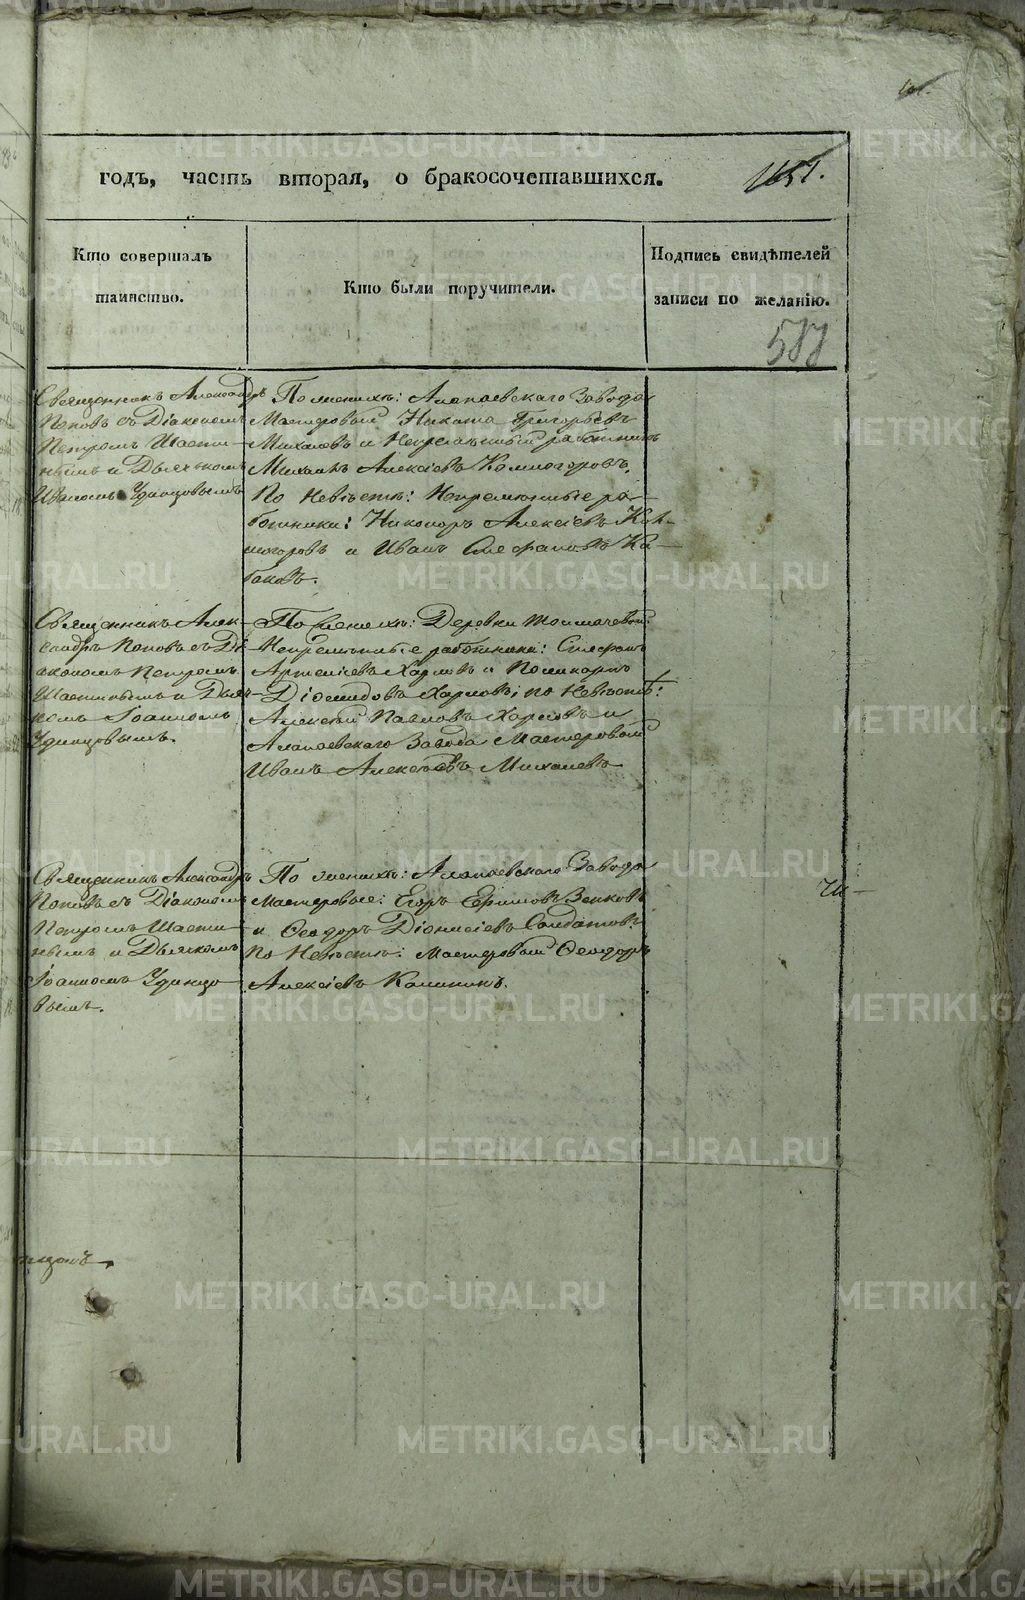 годъ, часть вторая, о бракосочетавшихся.
Кто совершалъ
таинство.
Кто были поручители.
Подпись свидѣтелей
записи по желанію.
587
Священникъ Александръ
Поповъ съ Діакономъ
Петромъ Шасти-
нымъ и Дьячкомъ
Иваномъ Удинцовымъ
По женихѣ: Алапаевскаго Завода
Мастеровый Никита Григорьевъ
Михалевъ и Непремѣнный работникъ
Михаилъ Алексѣевъ Комногоровъ,
По Невѣстѣ: Непремѣнные ра-
ботники: Никоноръ Алексѣевъ Ком-
ногоровъ и Иванъ Стефановъ Ка-
баковъ.
Священникъ Алек-
сандръ Поповъ съ Ді-
акономъ Петромъ
Шастинымъ и Дьяч-
комъ Іоанномъ
Удинцовымъ.
По женихѣ: Деревни Толмачевой
Непремѣнные работники: Стефанъ
Артемьевъ Харловъ и Поликарпъ
Діомидовъ Харловъ; по Невѣстѣ:
Алексѣй Павловъ Харловъ и
Алапаевскаго Завода Мастеровый
Иванъ Алексѣевъ Михалевъ
Священникъ Александръ
Поповъ съ Діакономъ
Петромъ Шасти-
нымъ и Дьячкомъ
Іоанномъ Удинцо-
вымъ.
По женихѣ: Алапаевскаго Завода
Мастеровые: Егоръ Ефимовъ Зенковъ
и Ѳеодоръ Діонисіевъ Солдатовъ
По Невѣстѣ: Мастеровый Ѳеодоръ
Алексѣевъ Калининъ.
METRIKI.GASO-URAL.RU